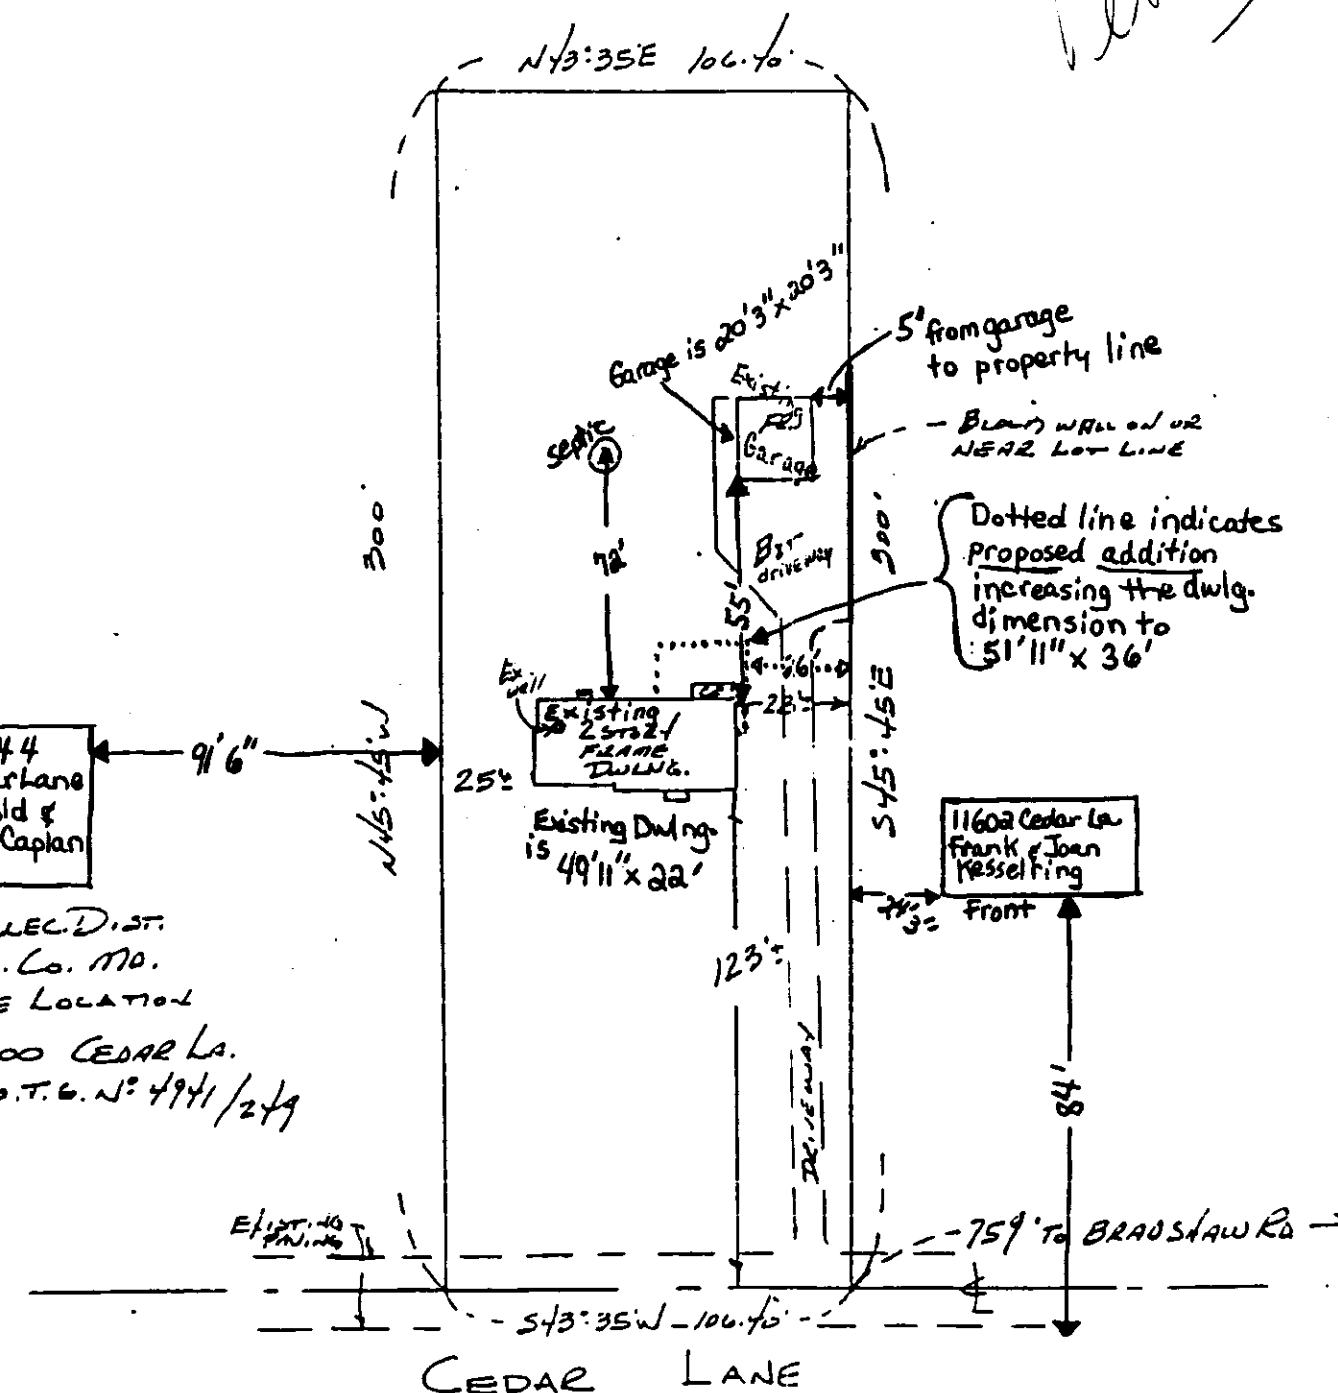 N43°35'E 106.40'
Garage is 20'3" x 20'3"
5' from garage
to property line
Exist.
Garage
septic
WALL ON OR
NEAR LOT LINE
300'
72'
55'
driveway
300'
Dotted line indicates
proposed addition
increasing the dwlg.
dimension to
51'11" x 36'
Ex.
well
Existing
2 STORY
FRAME
DWLNG.
23'±
N45°45'W
S45°45'E
44
r Lane
ld &
Caplan
91'6"
25'±
Existing Dwlng.
is 49'11" x 22'
11602 Cedar La
Frank & Joan
Kesselring
Front
123'±
84'
LEC. DIST.
. Co. MD.
E LOCATION
00 CEDAR LA.
.T.G. No 4941/249
DRIVEWAY
EXISTING
PAVING
759' To BRADSHAW RD
S43°35'W 106.40'
CEDAR LANE